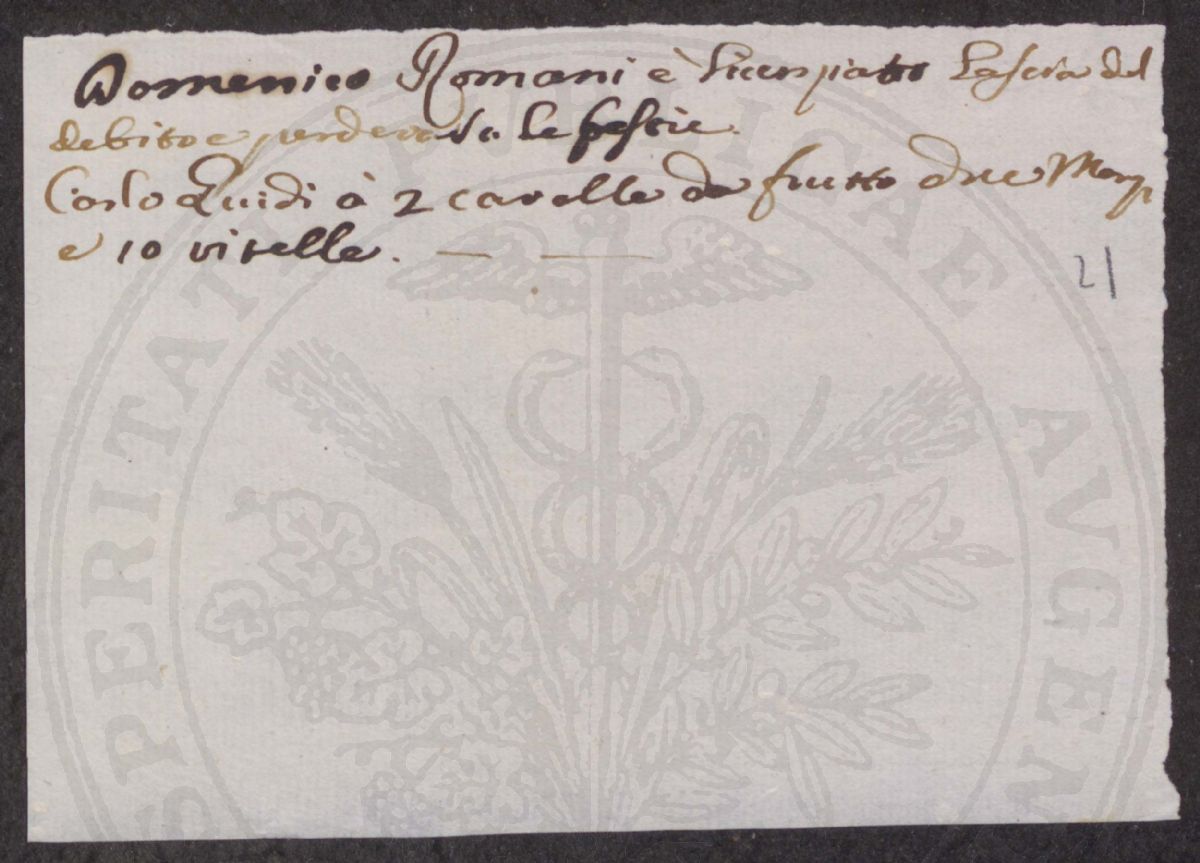 Domenico Romani è licenziato Lascia del
debito e perdera le bestie.
Carlo Guidi à 2 cavalle da frutto due
e 10 vitelle.
21
PERITATI PVBLICAE AVGEN